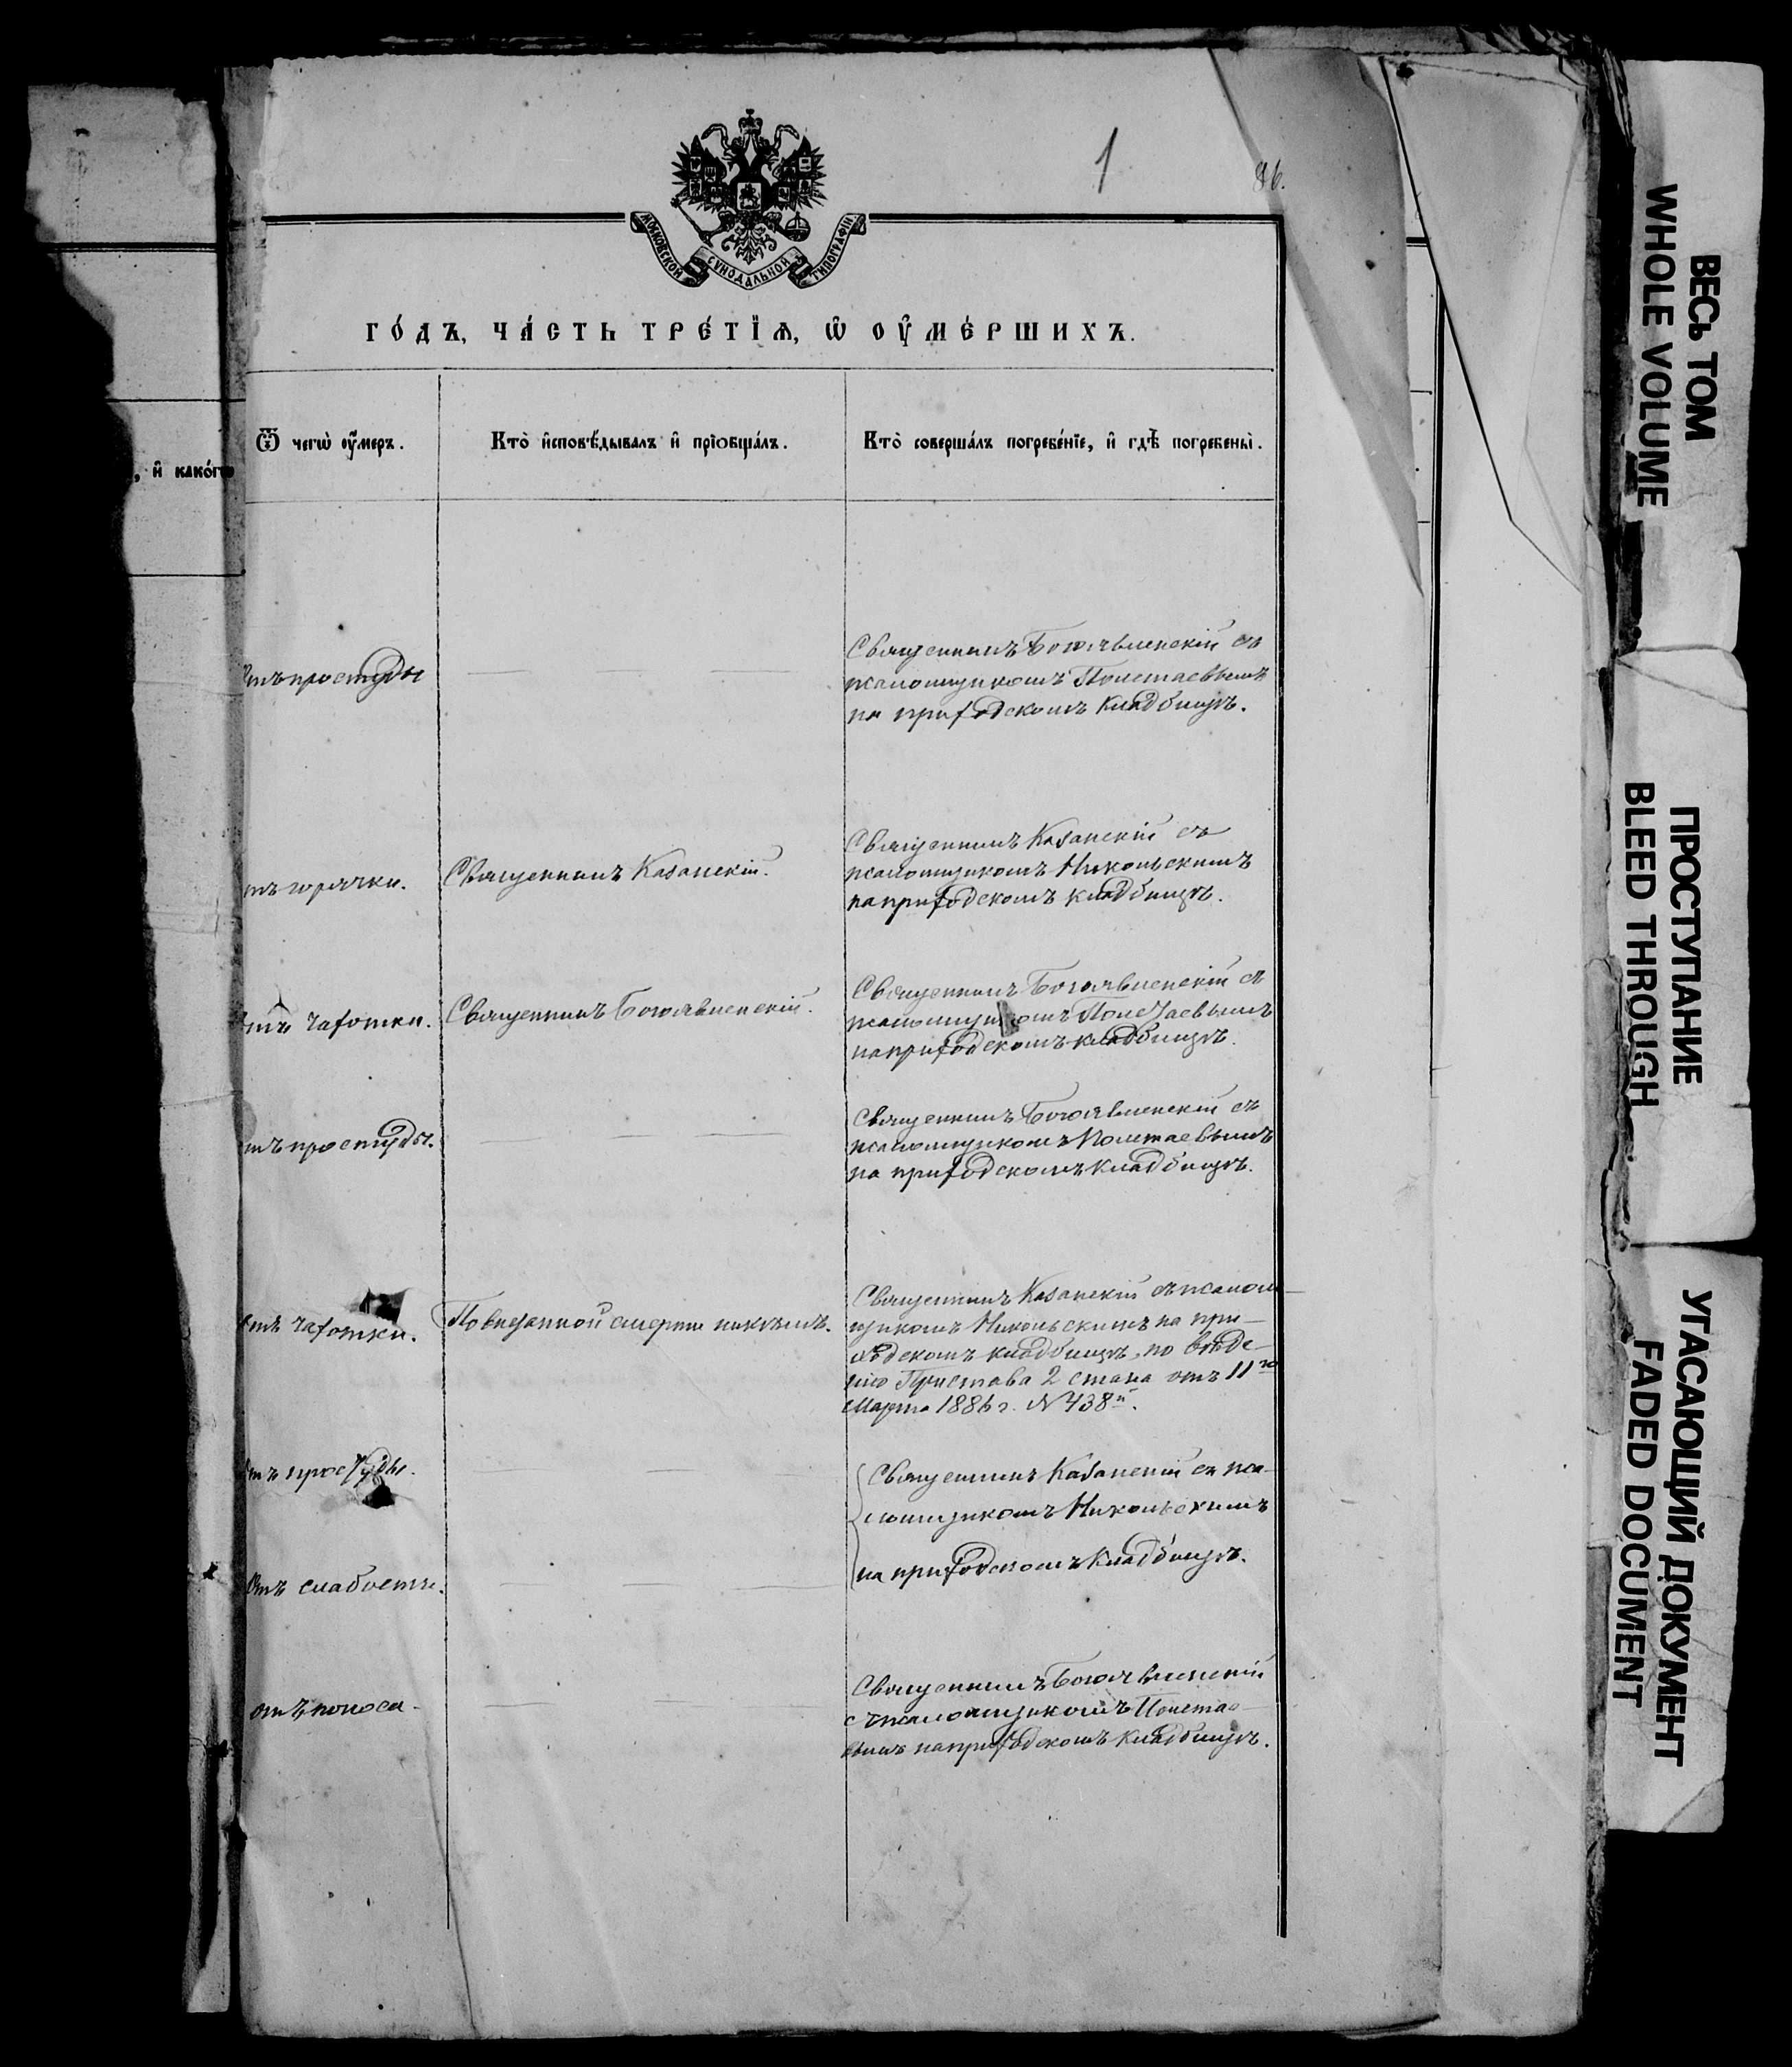 1
86.
МОСКОВСКОЙ СУНОДАЛЬНОЙ ТИПОГРАФІИ
ГО́ДЪ, ЧА́СТЬ ТРЕ́ТЇѦ, Ѡ҆ ОУ҆МЕ́РШИХЪ.
Ѿ чегѡ̀ оу҆́меръ.
Кто̀ и҆сповѣ́дывалъ и҆ прїѻбща́лъ.
Кто̀ соверша́лъ погребе́нїе, и҆ гдѣ̀ погребены̀.
, и҆ како́гѡ
Отъ простуды
Священникъ Богоявленскій съ
псаломщикомъ Полетаевымъ
на приходскомъ кладбищѣ.
отъ горячки.
Священникъ Казанскій.
Священникъ Казанскій съ
псаломщикомъ Никольскимъ
на приходскомъ кладбищѣ.
Отъ чахотки.
Священникъ Богоявленскій.
Священникъ Богоявленскій съ
псаломщикомъ Полетаевымъ
на приходскомъ кладбищѣ.
отъ простуды.
Священникъ Богоявленскій съ
псаломщикомъ Полетаевымъ
на приходскомъ кладбищѣ.
Отъ чахотки.
По внезапной смерти никѣмъ.
Священникъ Казанскій съ псалом-
щикомъ Никольскимъ на при-
ходскомъ кладбищѣ, по
Пристава 2 стана отъ 11го
Марта 1886 г. № 438й.
Отъ простуды.
Священникъ Казанскій съ пса-
ломщикомъ Никольскимъ
на приходскомъ кладбищѣ.
Отъ слабости.
отъ поноса.
Священникъ Богоявленскій
съ псаломщикомъ Полетае-
вымъ на приходскомъ кладбищѣ.
ВЕСЬ ТОМ
WHOLE VOLUME
ПРОСТУПАНИЕ
BLEED THROUGH
УГАСАЮЩИЙ ДОКУМЕНТ
FADED DOCUMENT